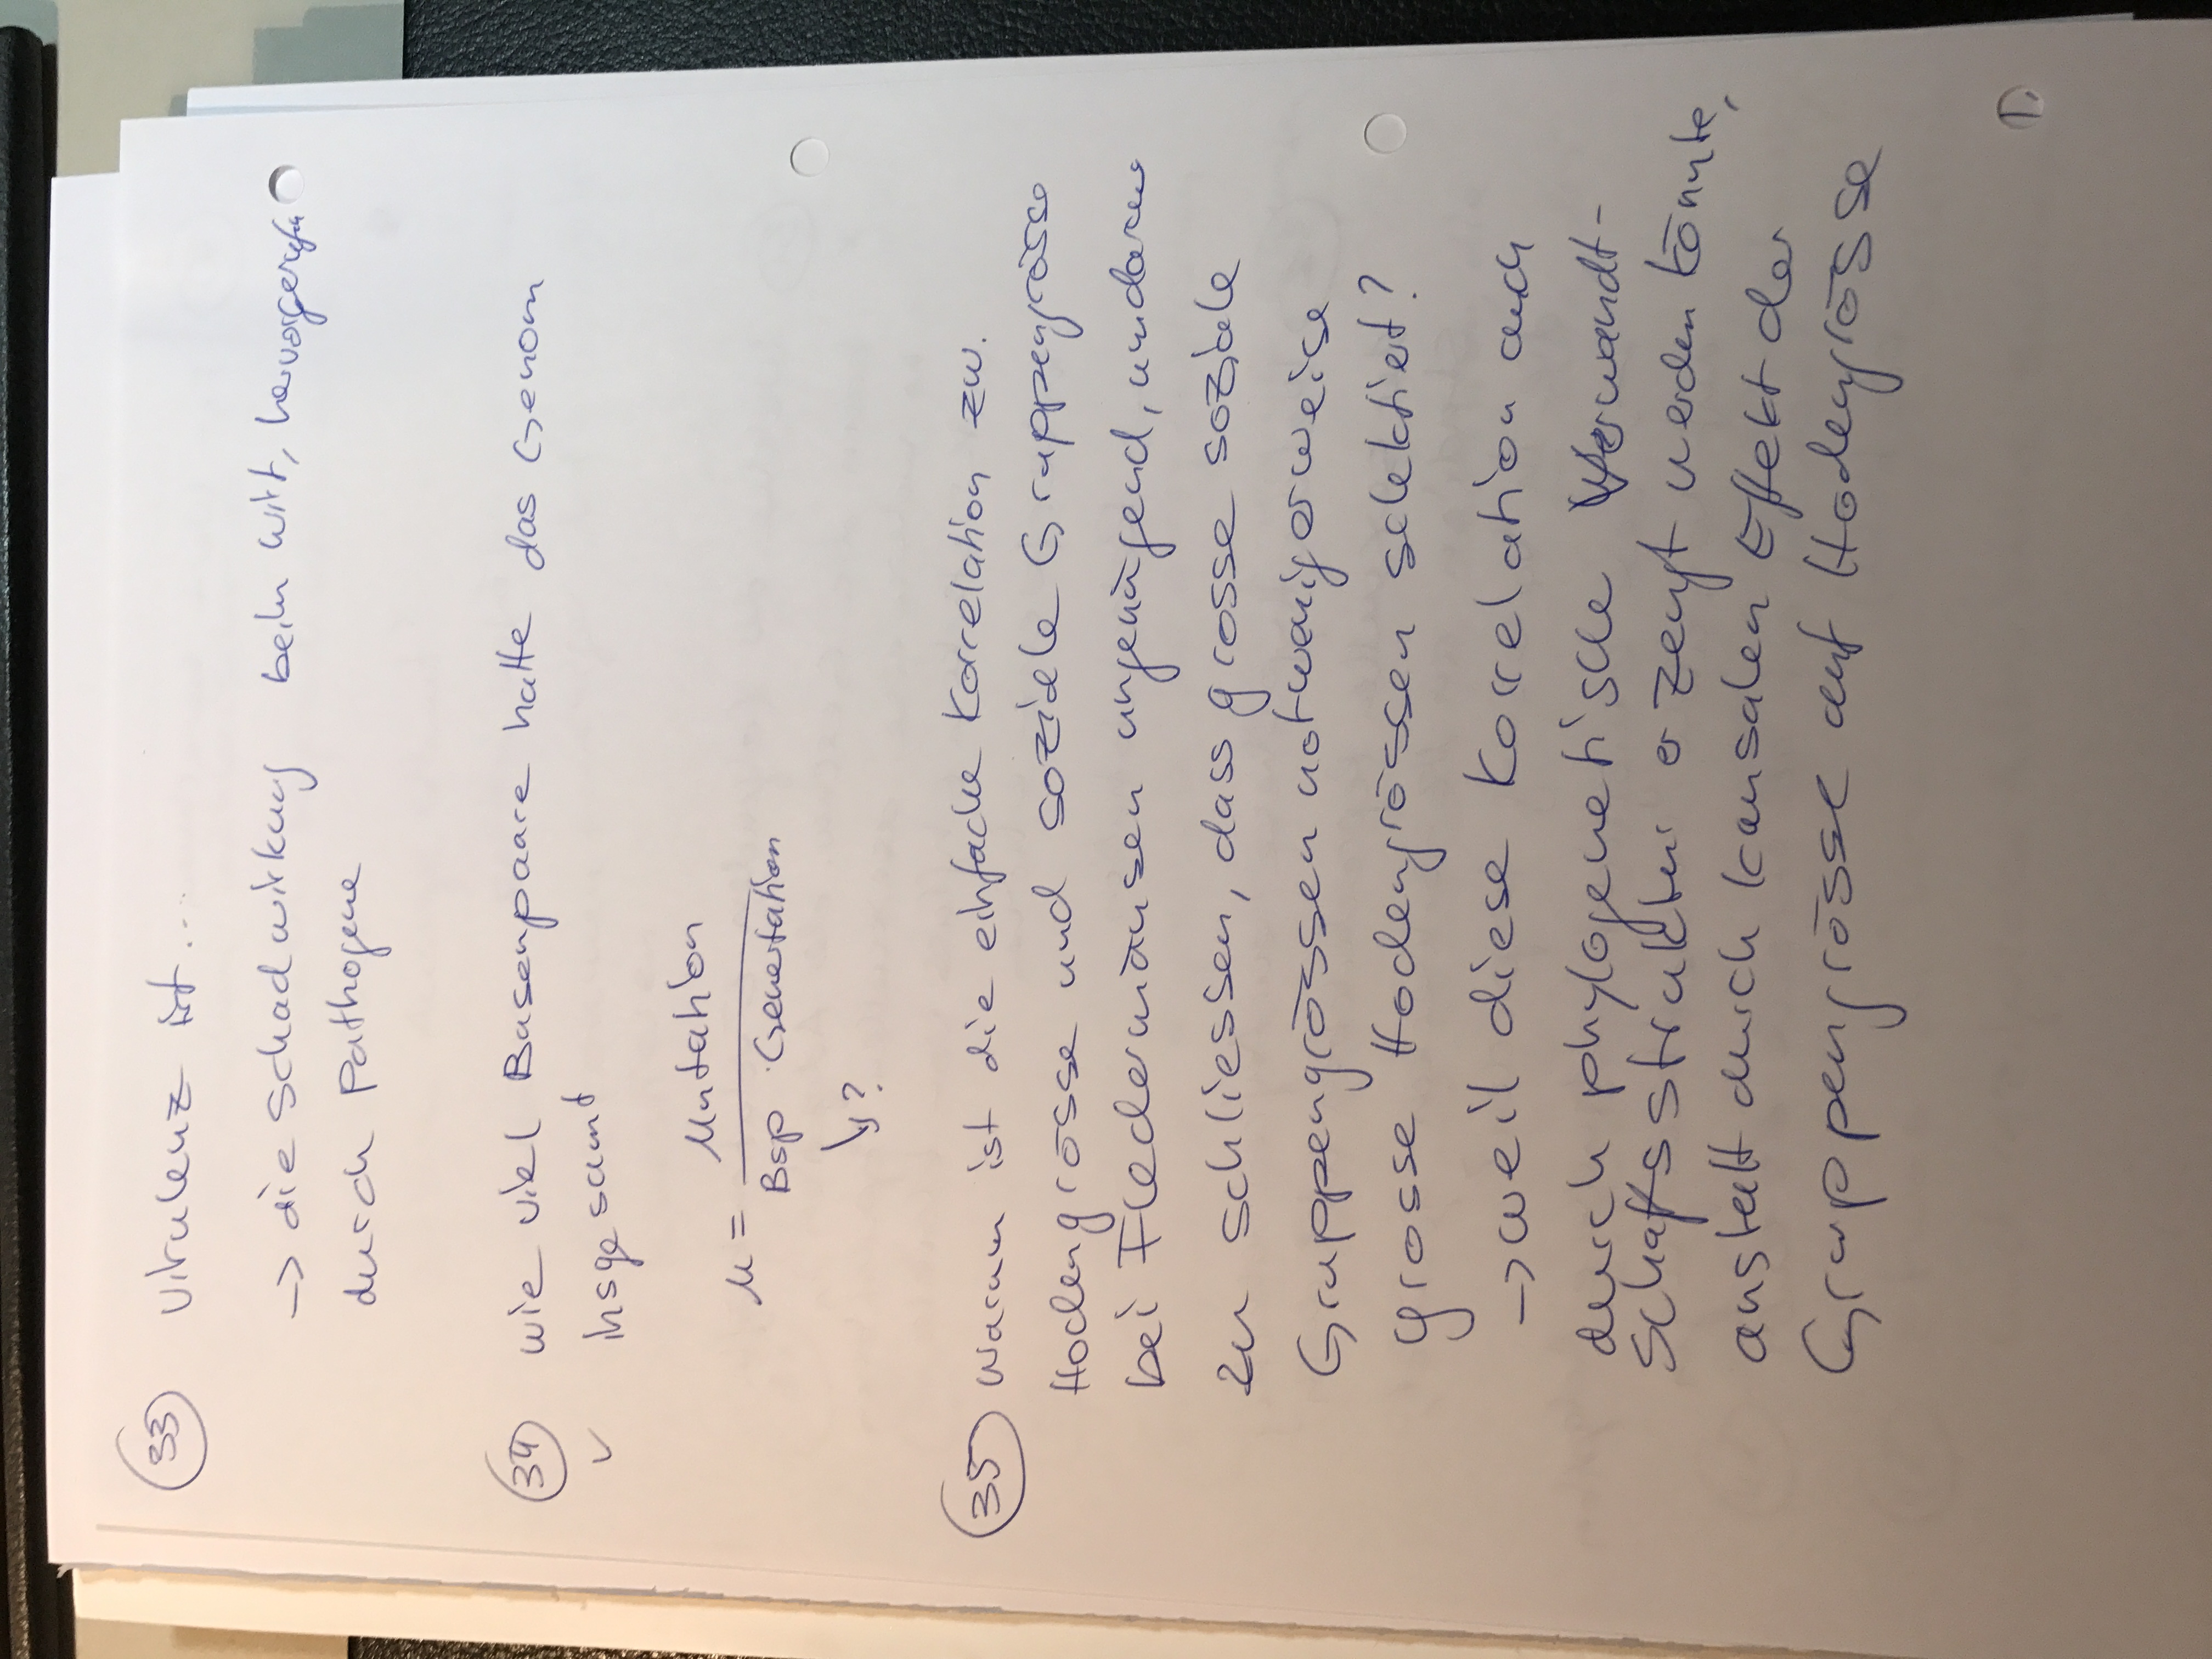 33 Virulenz ist...
-> die Schadwirkung beim Wirt, hervorgerufen
durch Pathogene
34 wie viel Basenpaare hatte das Genom
✓ insgesamt
μ = Mutation
Bsp · Genertation
↳ ?
35 Warum ist die einfache Korrelation zw.
Hodengrösse und soziale Gruppengrösse
bei Fledermäusen ungenügend, um daraus
zu schliessen, dass grosse soziale
Gruppengrössen notwenigerweise
grosse Hodengrössen selektiert?
-> weil diese Korrelation auch
durch phylogenetische Verwandt-
schaftsstruktur erzeugt werden könnte,
anstatt durch kausalen Effekt der
Gruppengrösse auf Hodengrösse